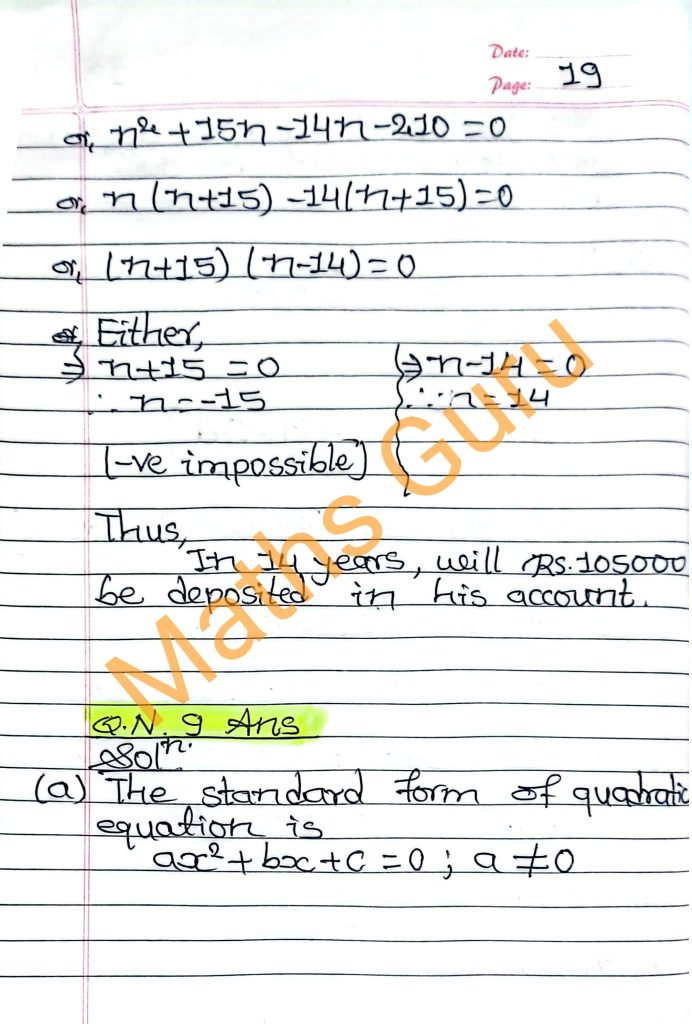 Date:
Page: 19
or, n² + 15n - 14n - 210 = 0
or, n (n+15) - 14(n+15) = 0
or, (n+15) (n-14) = 0
Either,
⇒ n+15 = 0 ⇒ n-14 = 0
∴ n = -15 ∴ n = 14
(-ve impossible)
Thus,
In 14 years, will Rs. 105000
be deposited in his account.
Maths Guru
Q.N. 9 Ans
Solⁿ.
(a) The standard form of quadratic
equation is
ax² + bx + c = 0 ; a ≠ 0